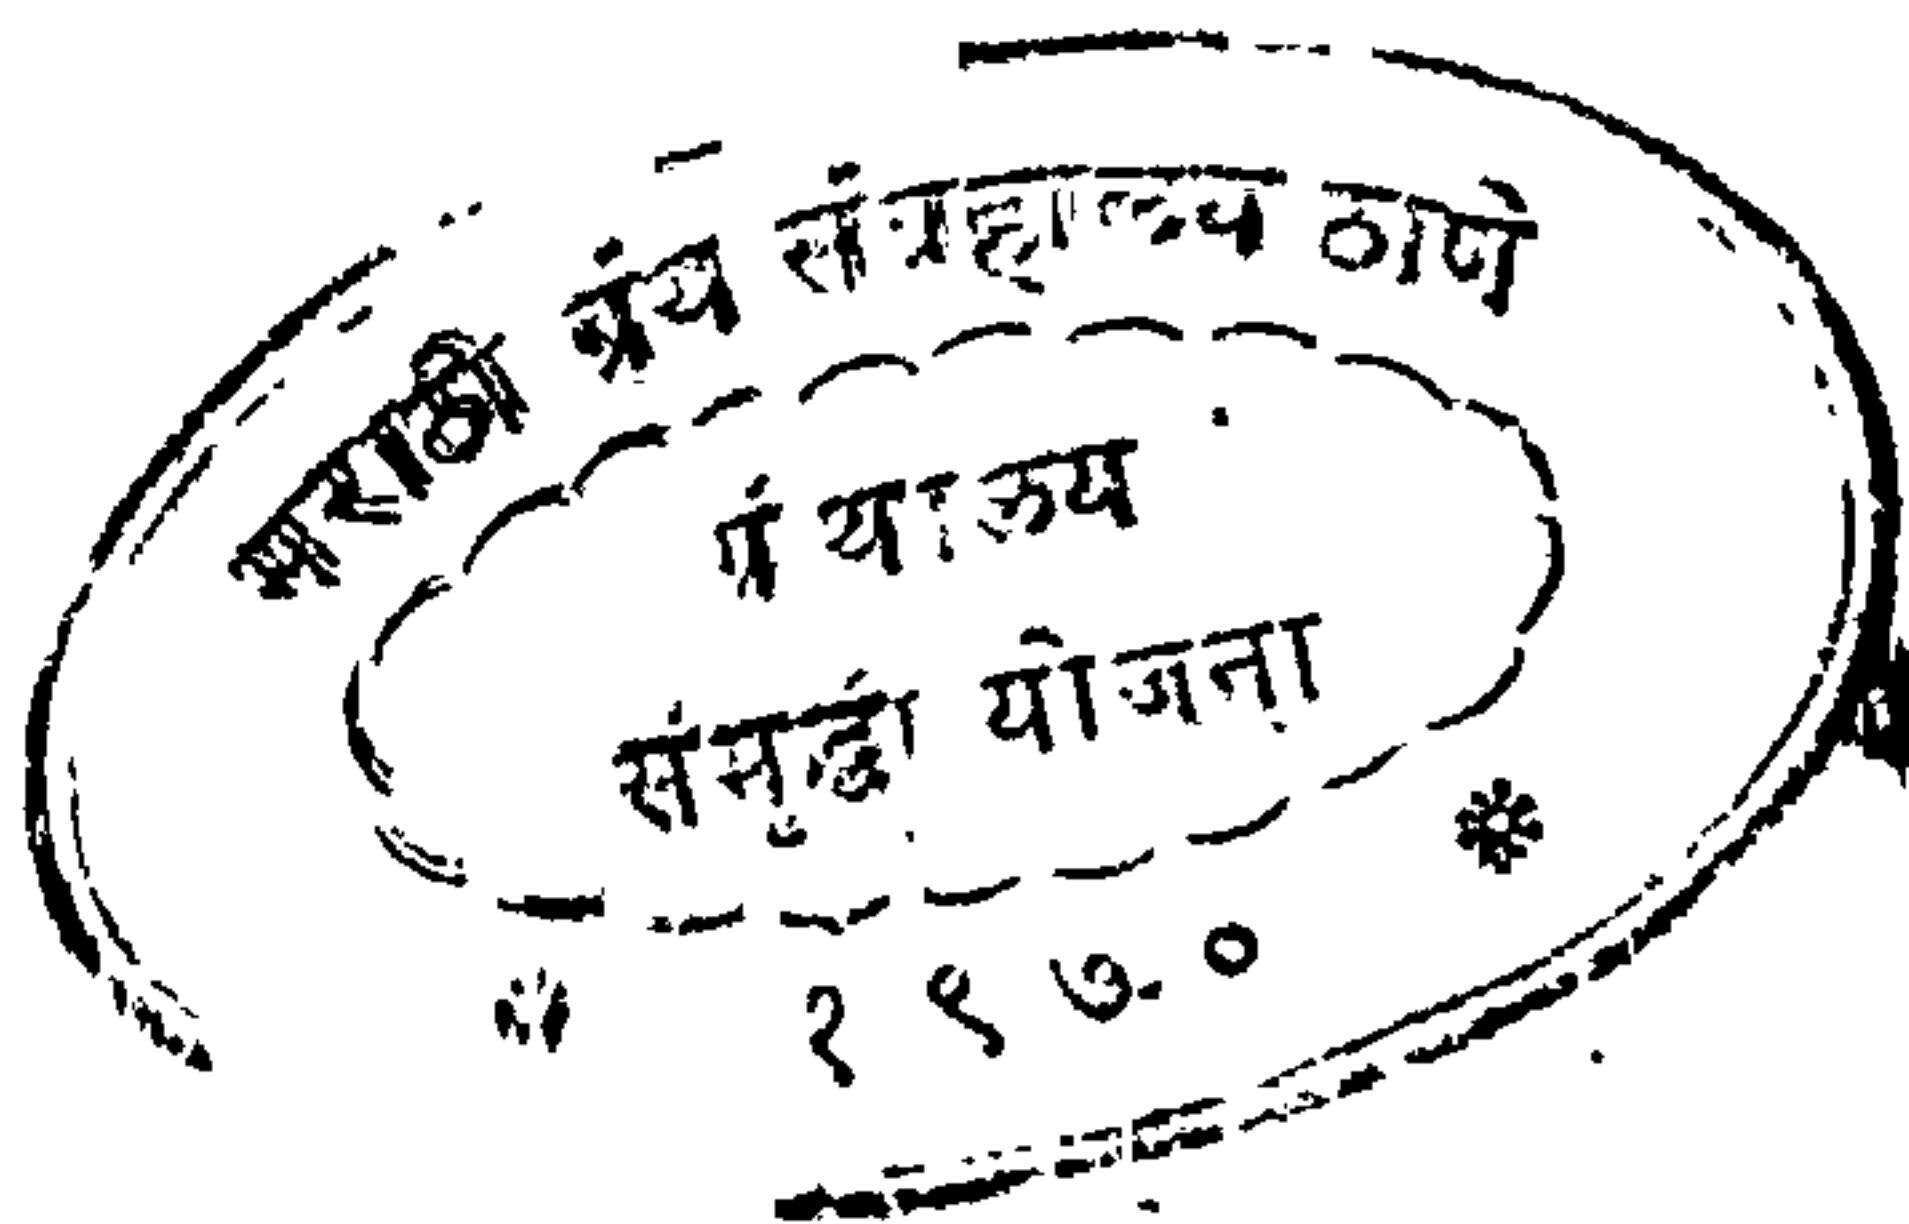 मराठी ग्रंथ संग्रहालय ठाणे
ग्रंथालय
संमृद्धी योजना
१९७०